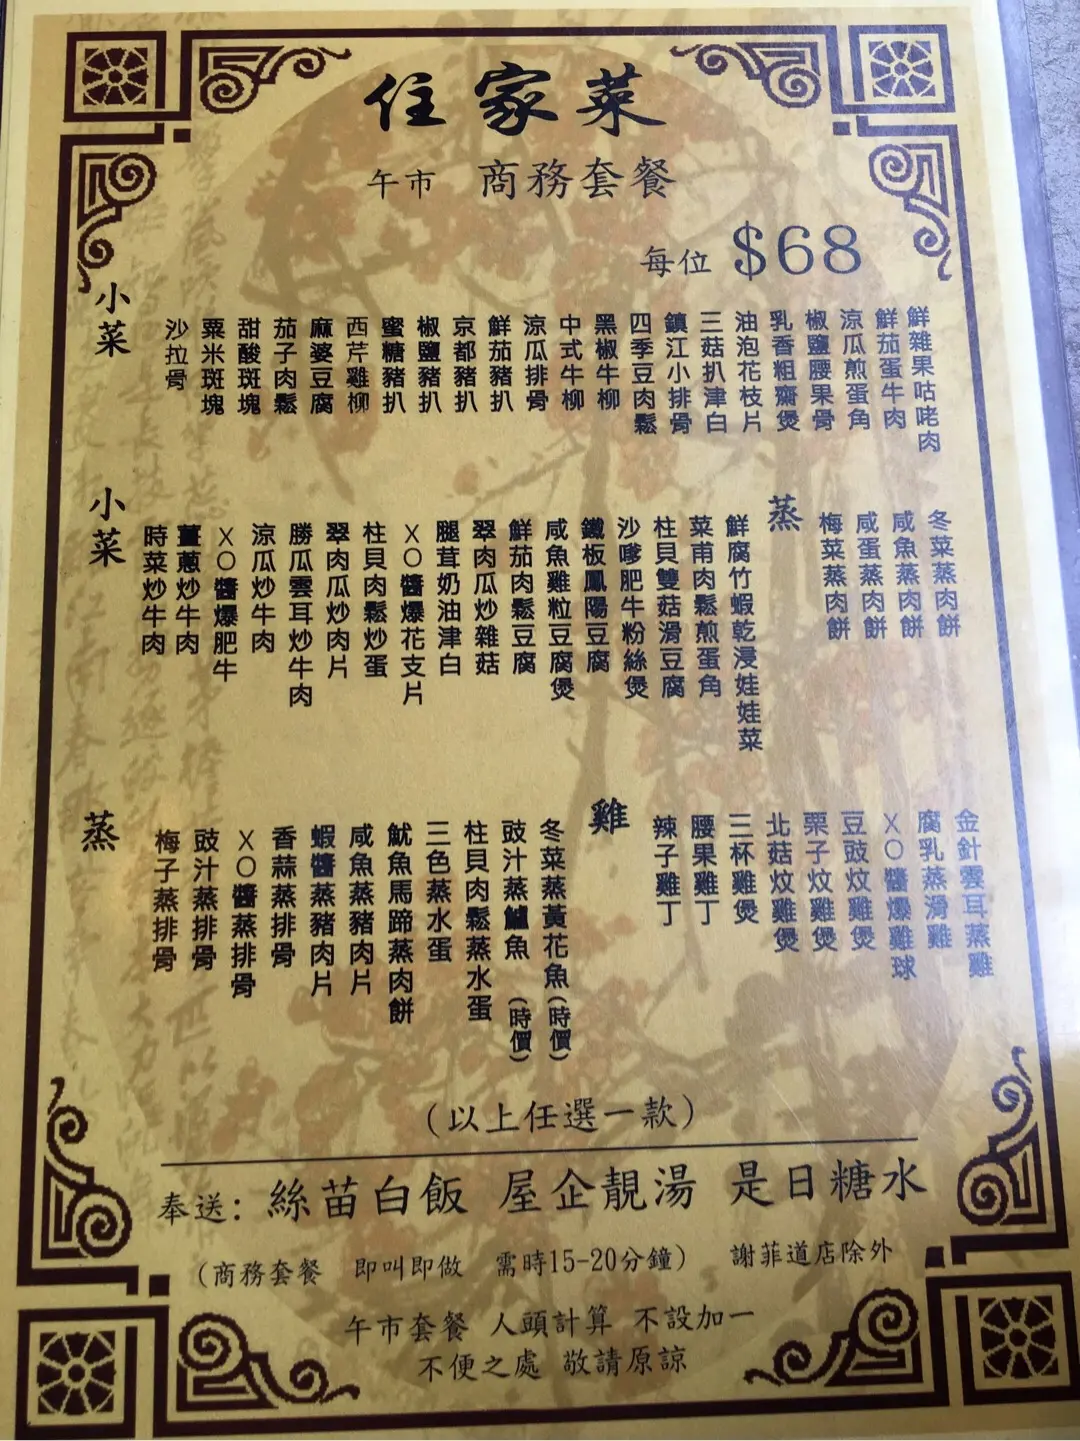 住家菜
午市 商務套餐
每位 $68
小菜
沙拉骨
粟米斑塊
甜酸斑塊
茄子肉鬆
麻婆豆腐
西芹雞柳
蜜糖豬扒
椒鹽豬扒
京都豬扒
鮮茄豬扒
涼瓜排骨
中式牛柳
黑椒牛柳
四季豆肉鬆
鎮江小排骨
三菇扒津白
油泡花枝片
乳香粗齋煲
椒鹽腰果骨
涼瓜煎蛋角
鮮茄蛋牛肉
鮮雜果咕咾肉
小菜
時菜炒牛肉
薑蔥炒牛肉
XO醬爆肥牛
涼瓜炒牛肉
勝瓜雲耳炒牛肉
翠肉瓜炒肉片
柱貝肉鬆炒蛋
XO醬爆花支片
腿茸奶油津白
翠肉瓜炒雜菇
鮮茄肉鬆豆腐
咸魚雞粒豆腐煲
鐵板鳳陽豆腐
沙嗲肥牛粉絲煲
柱貝雙菇滑豆腐
菜甫肉鬆煎蛋角
鮮腐竹蝦乾浸娃娃菜
蒸
梅菜蒸肉餅
咸蛋蒸肉餅
咸魚蒸肉餅
冬菜蒸肉餅
蒸
梅子蒸排骨
豉汁蒸排骨
XO醬蒸排骨
香蒜蒸排骨
蝦醬蒸豬肉片
咸魚蒸豬肉片
魷魚馬蹄蒸肉餅
三色蒸水蛋
柱貝肉鬆蒸水蛋
豉汁蒸鱸魚（時價）
冬菜蒸黃花魚（時價）
雞
辣子雞丁
腰果雞丁
三杯雞煲
北菇炆雞煲
栗子炆雞煲
豆豉炆雞煲
XO醬爆雞球
腐乳蒸滑雞
金針雲耳蒸雞
（以上任選一款）
奉送：絲苗白飯 屋企靚湯 是日糖水
（商務套餐 即叫即做 需時15-20分鐘） 謝菲道店除外
午市套餐 人頭計算 不設加一
不便之處 敬請原諒